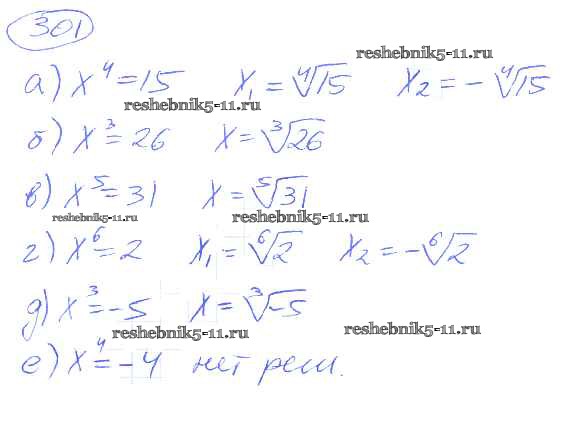 301
reshebnik5-11.ru
а) x⁴ = 15 x₁ = ⁴√15 x₂ = - ⁴√15
reshebnik5-11.ru
б) x³ = 26 x = ³√26
в) x⁵ = 31 x = ⁵√31
reshebnik5-11.ru reshebnik5-11.ru
г) x⁶ = 2 x₁ = ⁶√2 x₂ = - ⁶√2
д) x³ = -5 x = ³√-5
reshebnik5-11.ru reshebnik5-11.ru
е) x⁴ = -4 нет реш.